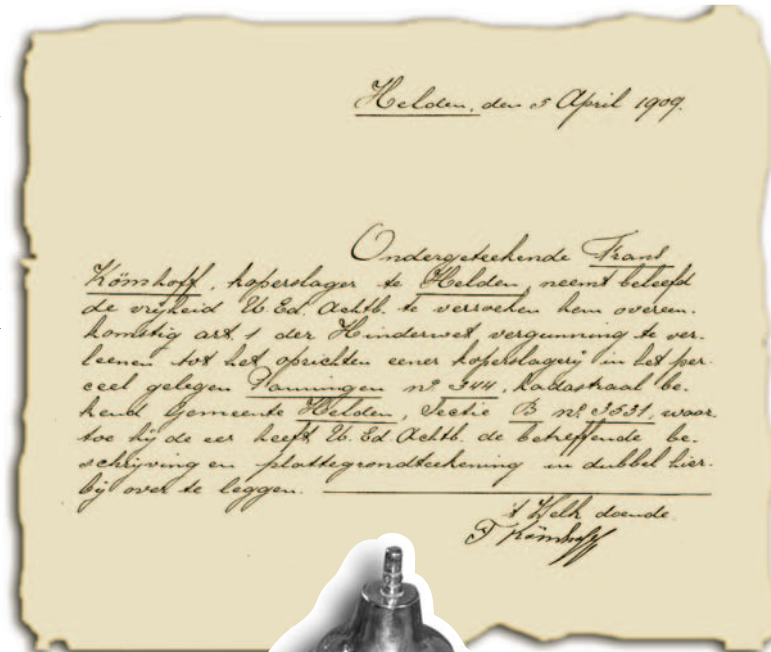 Helden, den 5 April 1909.
Ondergeteekende Frans
Kömhoff, koperslager te Helden, neemt beleefd
de vrijheid U. Ed. Achtb. te verzoeken hem overeen-
komstig art. 1 der Hinderwet vergunning te ver-
leenen tot het oprichten eener koperslagerij in het per-
ceel gelegen Panningen nº 344, Kadastraal be-
kend Gemeente Helden, Sectie B nº 3531, waar-
toe hij de eer heeft U. Ed Achtb. de betreffende be-
schrijving en plattegrondteekening in dubbel hier-
bij over te leggen.
't Welk doende
F Kömhoff